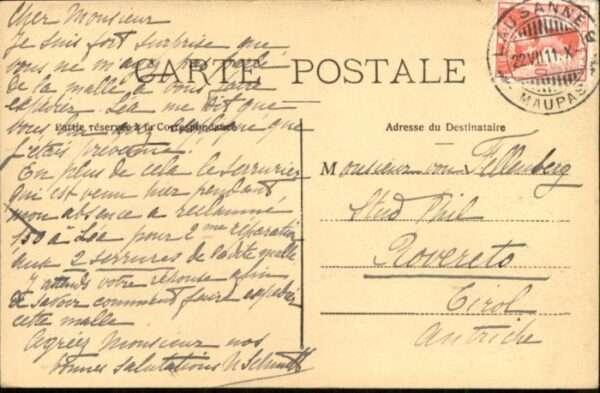 Cher Monsieur
Je suis fort surprise que
vous ne m'ayez pas parlé
de la malle à vous faire
expédier. Léa me dit que
vous lui avez expliqué que
j'étais prévenue.
En plus de cela le serrurier
qui est venu hier pendant
mon absence a réclamé
1.50 à Léa pour 2me réparation
aux 2 serrures de cette malle
J'attends votre réponse afin
de savoir comment faire expédier
cette malle
Agréez Monsieur nos
bonnes salutations
CARTE POSTALE
Partie réservée à la Correspondance
Adresse du Destinataire
LAUSANNE 6
22 VII 11. X
MAUPAS
Monsieur von Fellenberg
Stud Phil
Rovereto
Tirol
Autriche